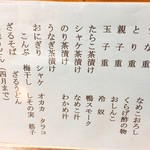 うな重
とり重
親子重
玉子重
たらこ茶漬け
シャケ茶漬け
のり茶漬け
うなぎ茶漬け
おにぎり シャケ オカカ タラコ
こんぶ 梅干し しその実 筋子
ざるそば ざるうどん
なめこおろし
くらげ酢の物
おしんこ
冷奴
鴨スモーク
なめこ汁
わかめ汁
四月まで